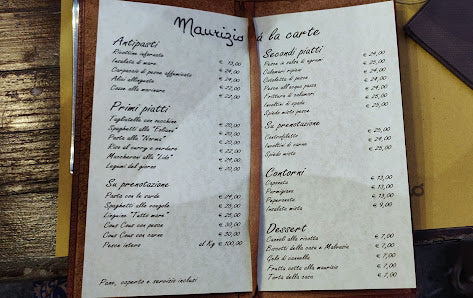 Maurizio à la carte
Antipasti
Ricottine infornate € 13,00
Insalata di mare € 24,00
Carpaccio di pesce affumicato € 24,00
Alici allinguate € 22,00
Cozze alla marinara € 22,00
Primi piatti
Tagliatelle con zucchine € 20,00
Spaghetti alla "Eoliana" € 20,00
Pasta alla "Norma" € 20,00
Riso al curry e verdure € 22,00
Maccheroni alla "Lido" € 24,00
Legumi del giorno € 20,00
Su prenotazione
Pasta con le sarde € 24,00
Spaghetti alle vongole € 25,00
Linguine "Tutto mare" € 25,00
Cous Cous con pesce € 30,00
Cous Cous con carne € 30,00
Pesce intero al Kg € 100,00
Pane, coperto e servizio inclusi
Secondi piatti
Pesce in salsa di agrumi € 24,00
Calamari ripieni € 24,00
Cotoletta di pesce € 24,00
Pesce all'acqua pazza € 24,00
Frittura di calamari € 24,00
Involtini di spada € 24,00
Spiedo misto pesce € 25,00
Su prenotazione
Controfiletto € 25,00
Involtini di carne € 24,00
Spiedo misto € 25,00
Contorni
Caponata € 13,00
Parmigiana € 13,00
Peperonata € 13,00
Insalata mista € 9,00
Dessert
Cannoli alla ricotta € 7,00
Biscotti della casa e Malvasia € 7,00
Gelo di cannella € 7,00
Frutta cotta alla maurizio € 7,00
Torta della casa € 7,00